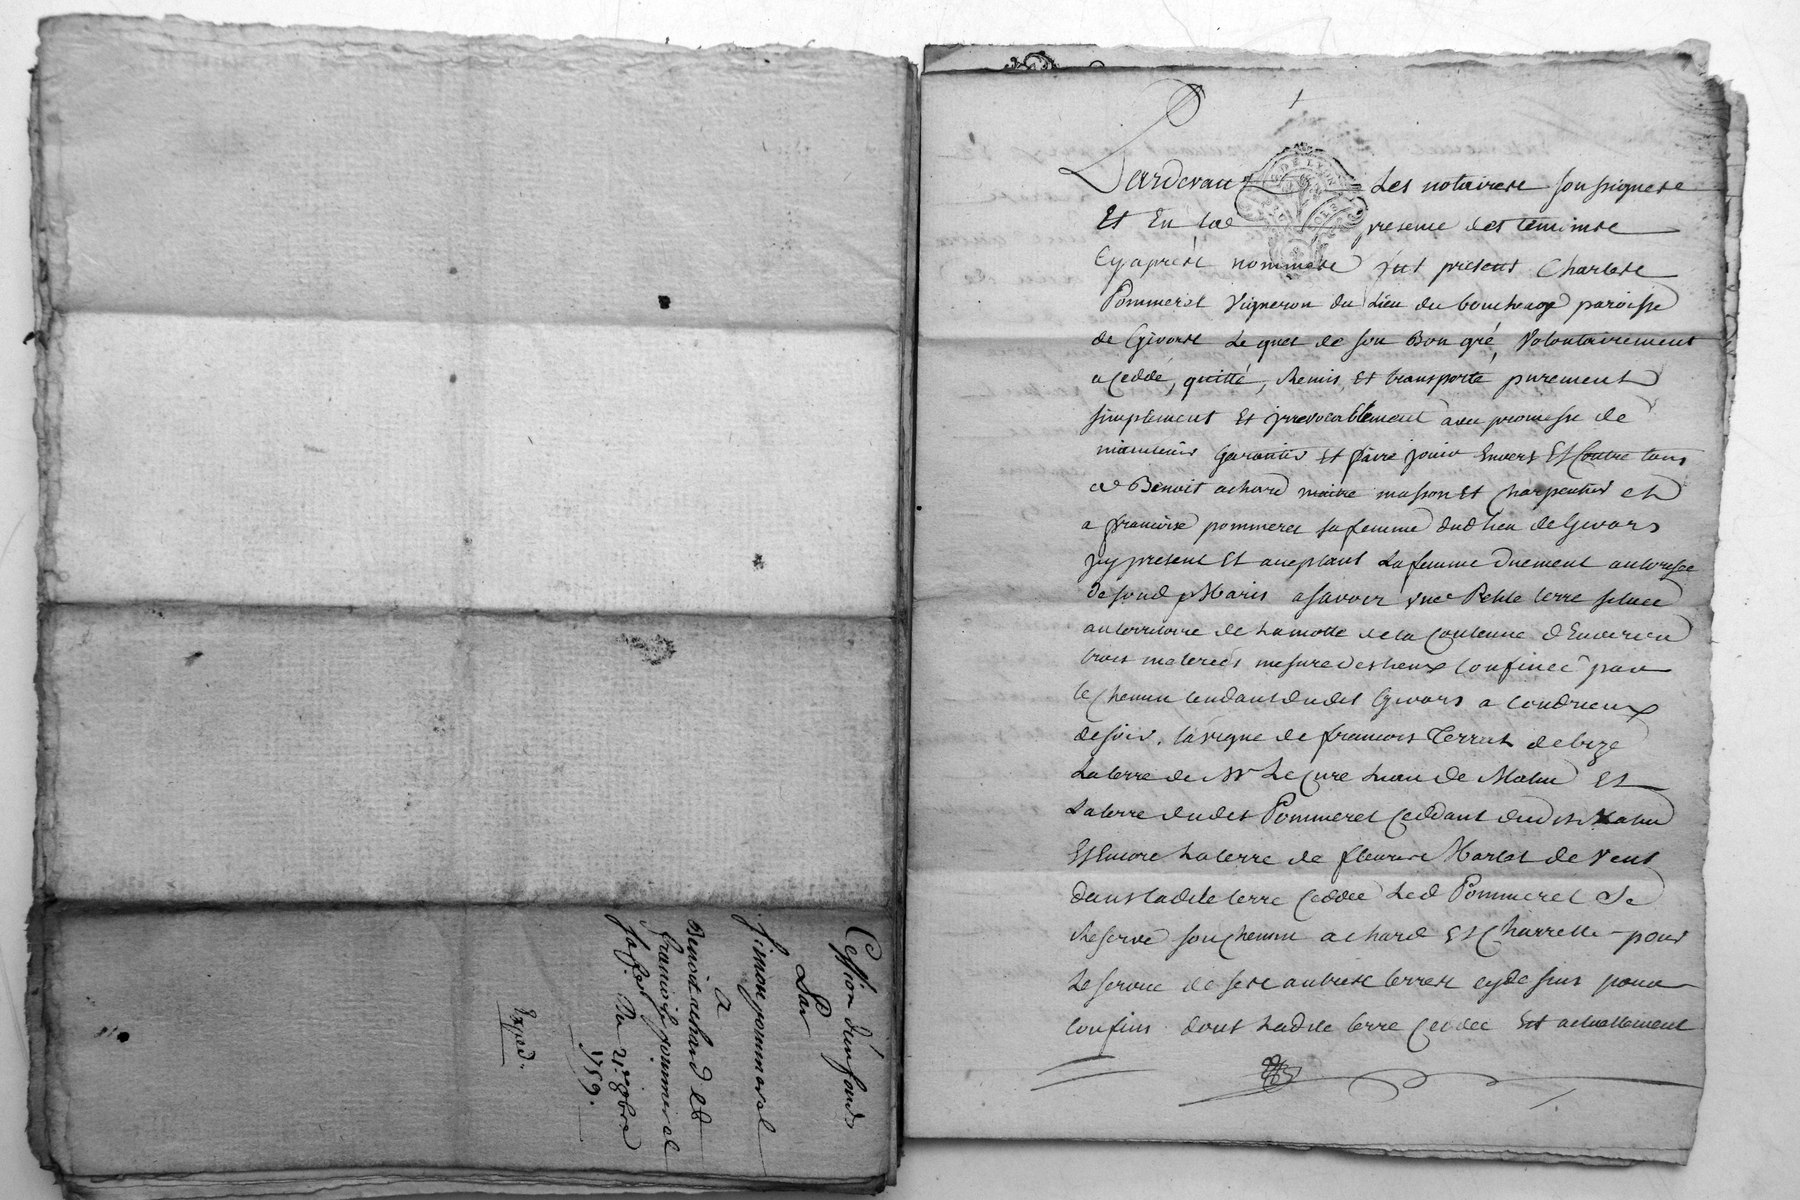 Cession d'un fond
Par
simon pommeral
a
Benoit achard et
francoise pommeral
sa fe Du 21e 8bre
1759.
Exped.
Pardevant Les notaires soussignes
Et En la presence des temoins
Cy apres nommes fut present Charles
Pommeret Vigneron du Lieu du bouchage paroisse
de Givors Le quel de son Bon gré, Volontairement
a Ceddé, quitté, Remis, Et transporte purement
simplement Et jrrevocablement avec promesse de
maintenir Garantir Et faire jouir Envers Et Contre tous
a Benoit achard maitre masson Et Charpentier et
a francoise pommeret sa femme dud lieu de Givors
jcy present Et acceptant La femme duement autorisee
de sond Maris a savoir une Petite terre situee
au territoire de Lamotte de la Contenue d'Environ
trois meterées mesure des lieux Confinée par
le Chemin tendant dudet Givors a Condrieux
de soir, la vigne de francois Terrat de bize
La terre de Mr Le Cure de Matin Et
La terre dudet Pommeret Ceddant dudit Matin
Et Encore La terre de fleurie Marlet de Vent
dans ladite terre Ceddée Led Pommeret Se
Reserve son Chemin a chard Et Charrette pour
Le service de ses autres terres cy dessus pour
Confins dont Ladite terre Ceddée Est actuellement